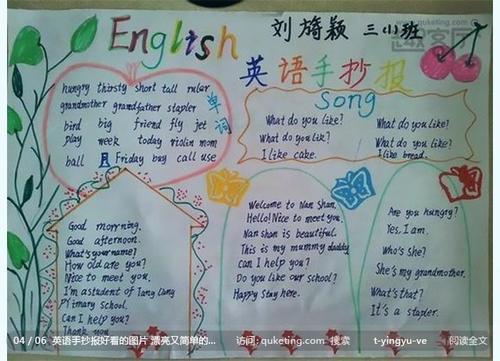 English
刘旖颖 三(1)班
英语手抄报
hungry thirsty short tall rular
grandmother grandfather stapler
bird big friend fly jet
play week today violin mom
ball 月 Friday buy call use
单词
Song
What do you like?
What do you lik?
I like cake.
What do you like?
What do you like?
I like bread.
Good morrning.
Good afternoon.
What's your name?
How old are you?
Nice to meet you.
I'm a student of Tang Liang
PYimary School.
Can I help you?
Thank you
Welcome to Nan Shan,
Hello! Nice to meet you,
Nan shan is beautiful.
This is my mummy daddy
Can I help you?
Do you like our school?
Happy stay here.
Are you hungry?
Yes, I am.
Who's She?
She's my grandmother.
What's that?
It's a stapler.
04 / 06 英语手抄报好看的图片 漂亮又简单的... 访问: quketing.com 搜索 t-yingyu-ve 阅读全文
www.quketing.com